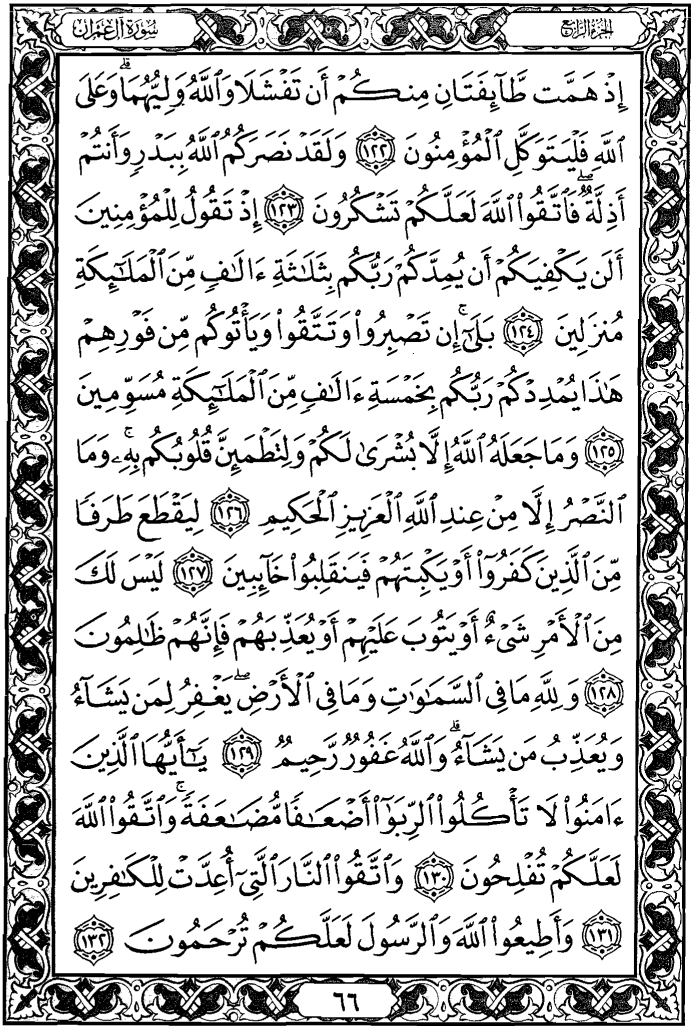 الجزء الرابع
سورة آل عمران
إِذْ هَمَّت طَّآئِفَتَانِ مِنكُمْ أَن تَفْشَلَا وَٱللَّهُ وَلِيُّهُمَاۗ وَعَلَى
ٱللَّهِ فَلْيَتَوَكَّلِ ٱلْمُؤْمِنُونَ ١٢٢ وَلَقَدْ نَصَرَكُمُ ٱللَّهُ بِبَدْرٍ وَأَنتُمْ
أَذِلَّةٌۖ فَٱتَّقُوا۟ ٱللَّهَ لَعَلَّكُمْ تَشْكُرُونَ ١٢٣ إِذْ تَقُولُ لِلْمُؤْمِنِينَ
أَلَن يَكْفِيَكُمْ أَن يُمِدَّكُمْ رَبُّكُم بِثَلَٰثَةِ ءَالَٰفٍ مِّنَ ٱلْمَلَٰٓئِكَةِ
مُنزَلِينَ ١٢٤ بَلَىٰٓۚ إِن تَصْبِرُوا۟ وَتَتَّقُوا۟ وَيَأْتُوكُم مِّن فَوْرِهِمْ
هَٰذَا يُمْدِدْكُمْ رَبُّكُم بِخَمْسَةِ ءَالَٰفٍ مِّنَ ٱلْمَلَٰٓئِكَةِ مُسَوِّمِينَ
١٢٥ وَمَا جَعَلَهُ ٱللَّهُ إِلَّا بُشْرَىٰ لَكُمْ وَلِتَطْمَئِنَّ قُلُوبُكُم بِهِۦۗ وَمَا
ٱلنَّصْرُ إِلَّا مِنْ عِندِ ٱللَّهِ ٱلْعَزِيزِ ٱلْحَكِيمِ ١٢٦ لِيَقْطَعَ طَرَفًا
مِّنَ ٱلَّذِينَ كَفَرُوٓا۟ أَوْ يَكْبِتَهُمْ فَيَنقَلِبُوا۟ خَآئِبِينَ ١٢٧ لَيْسَ لَكَ
مِنَ ٱلْأَمْرِ شَىْءٌ أَوْ يَتُوبَ عَلَيْهِمْ أَوْ يُعَذِّبَهُمْ فَإِنَّهُمْ ظَٰلِمُونَ
١٢٨ وَلِلَّهِ مَا فِى ٱلسَّمَٰوَٰتِ وَمَا فِى ٱلْأَرْضِۖ يَغْفِرُ لِمَن يَشَآءُ
وَيُعَذِّبُ مَن يَشَآءُۗ وَٱللَّهُ غَفُورٌ رَّحِيمٌ ١٢٩ يَٰٓأَيُّهَا ٱلَّذِينَ
ءَامَنُوا۟ لَا تَأْكُلُوا۟ ٱلرِّبَوٰٓا۟ أَضْعَٰفًا مُّضَٰعَفَةًۖ وَٱتَّقُوا۟ ٱللَّهَ
لَعَلَّكُمْ تُفْلِحُونَ ١٣٠ وَٱتَّقُوا۟ ٱلنَّارَ ٱلَّتِىٓ أُعِدَّتْ لِلْكَٰفِرِينَ
١٣١ وَأَطِيعُوا۟ ٱللَّهَ وَٱلرَّسُولَ لَعَلَّكُمْ تُرْحَمُونَ ١٣٢
٦٦